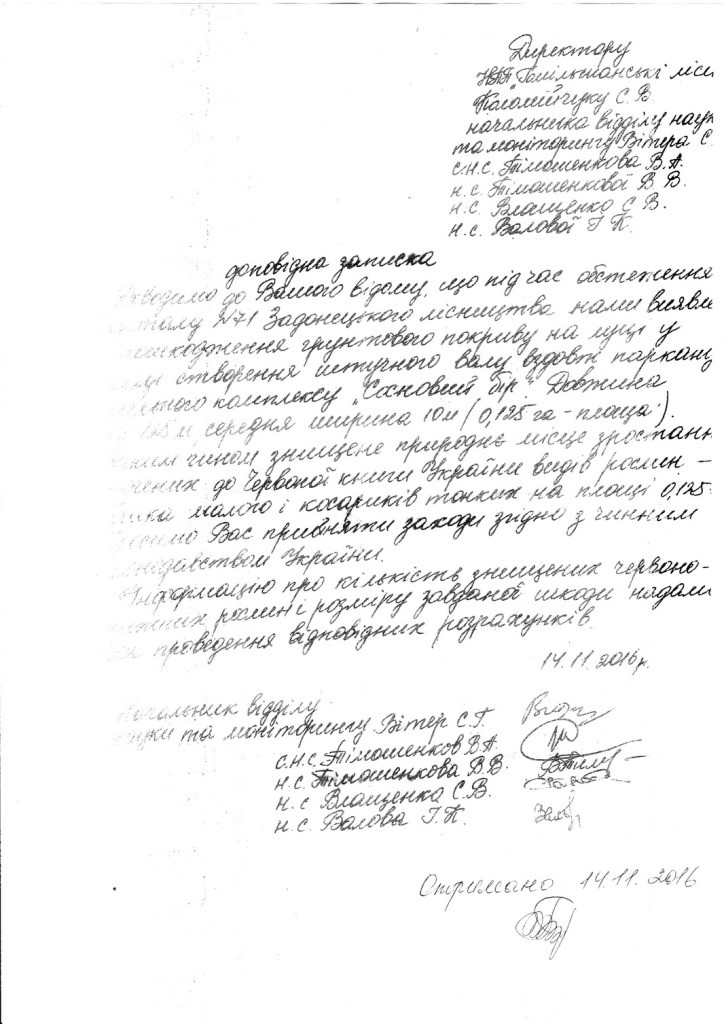 Директору
НПП "Гомільшанські ліси
Коломійчуку С.В.
начальника відділу наук
та моніторингу Вітера С.
с.н.с. Тімошенкова В.А.
н.с. Тімошенкової В.В.
н.с. Влащенко С.В.
н.с. Валової І.П.
доповідна записка
до Вашого відому, що під час обстеження
№71 Задонецького лісництва нами виявле
грунтового покриву на луці у
створення штучного валу вздовж паркану
комплексу "Сосновий бір". Довжина
середня ширина 10м (0,125 га - площа).
чином знищене природнє місце зростанн
до Червоної книги України видів рослин -
малого і косариків тонких на площі 0,125
Вас прийняти заходи згідно з чинним
України.
Інформацію про кількість знищених червоно-
рослин і розміру завданої шкоди надали
проведення відповідних розрахунків.
14.11.2016р.
Начальник відділу
науки та моніторингу Вітер С.Г.
с.н.с. Тімошенков В.А.
н.с. Тімошенкова В.В.
н.с. Влащенко С.В.
н.с. Валова І.П.
Отримано 14.11.2016